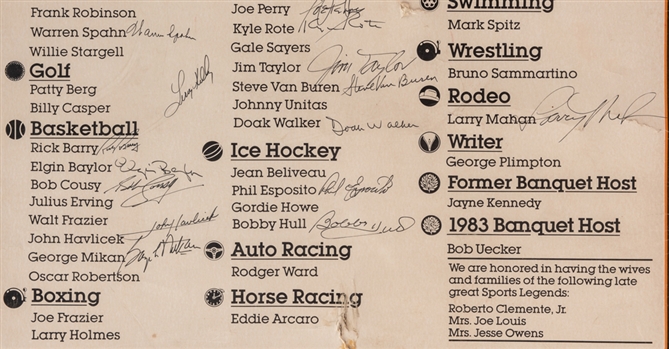 Frank Robinson
Warren Spahn Warren Spahn
Willie Stargell
Golf
Patty Berg
Billy Casper
Basketball
Rick Barry
Elgin Baylor Elgin Baylor
Bob Cousy Bob Cousy
Julius Erving
Walt Frazier
John Havlicek John Havlicek
George Mikan George Mikan
Oscar Robertson
Boxing
Joe Frazier
Larry Holmes
Joe Perry
Kyle Rote Kyle Rote
Gale Sayers
Jim Taylor Jim Taylor
Steve Van Buren Steve Van Buren
Johnny Unitas
Doak Walker Doak Walker
Ice Hockey
Jean Beliveau
Phil Esposito Phil Esposito
Gordie Howe
Bobby Hull Bobby Hull
Auto Racing
Rodger Ward
Horse Racing
Eddie Arcaro
Swimming
Mark Spitz
Wrestling
Bruno Sammartino
Rodeo
Larry Mahan Larry Mahan
Writer
George Plimpton
Former Banquet Host
Jayne Kennedy
1983 Banquet Host
Bob Uecker
We are honored in having the wives
and families of the following late
great Sports Legends:
Roberto Clemente, Jr.
Mrs. Joe Louis
Mrs. Jesse Owens